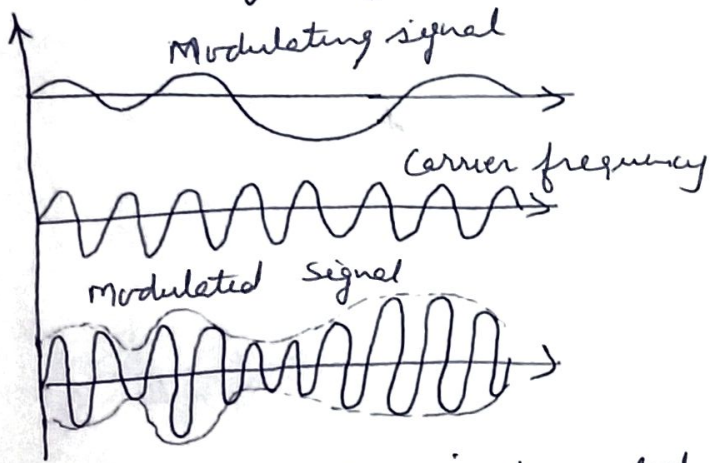 Modulating signal
Carrier frequency
Modulated signal